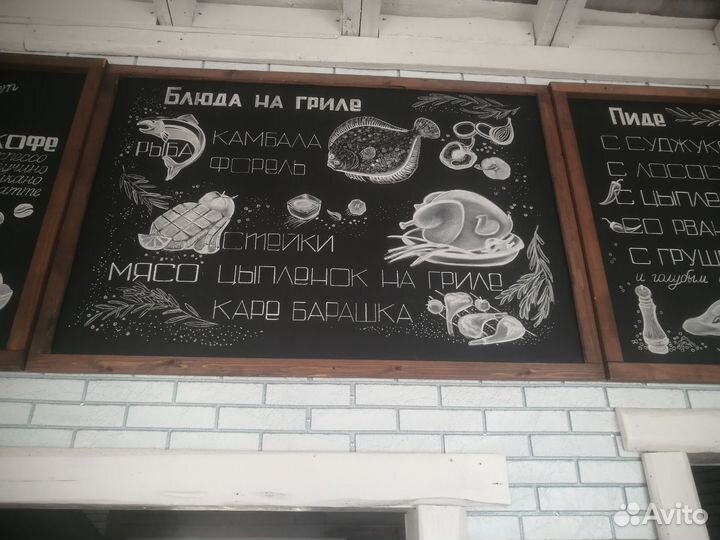 Кофе
Блюда на гриле
Рыба
Камбала
Форель
Стейки
Мясо Цыпленок на гриле
Каре барашка
Пиде
с суджук
с лосос
с цыпле
со рван
с груш
и голубым
Avito